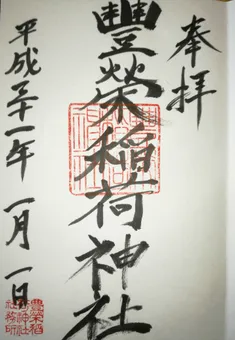 奉拝
豐榮稲荷神社
平成三十一年 一月 一日
豊栄稲
荷神社
社務所